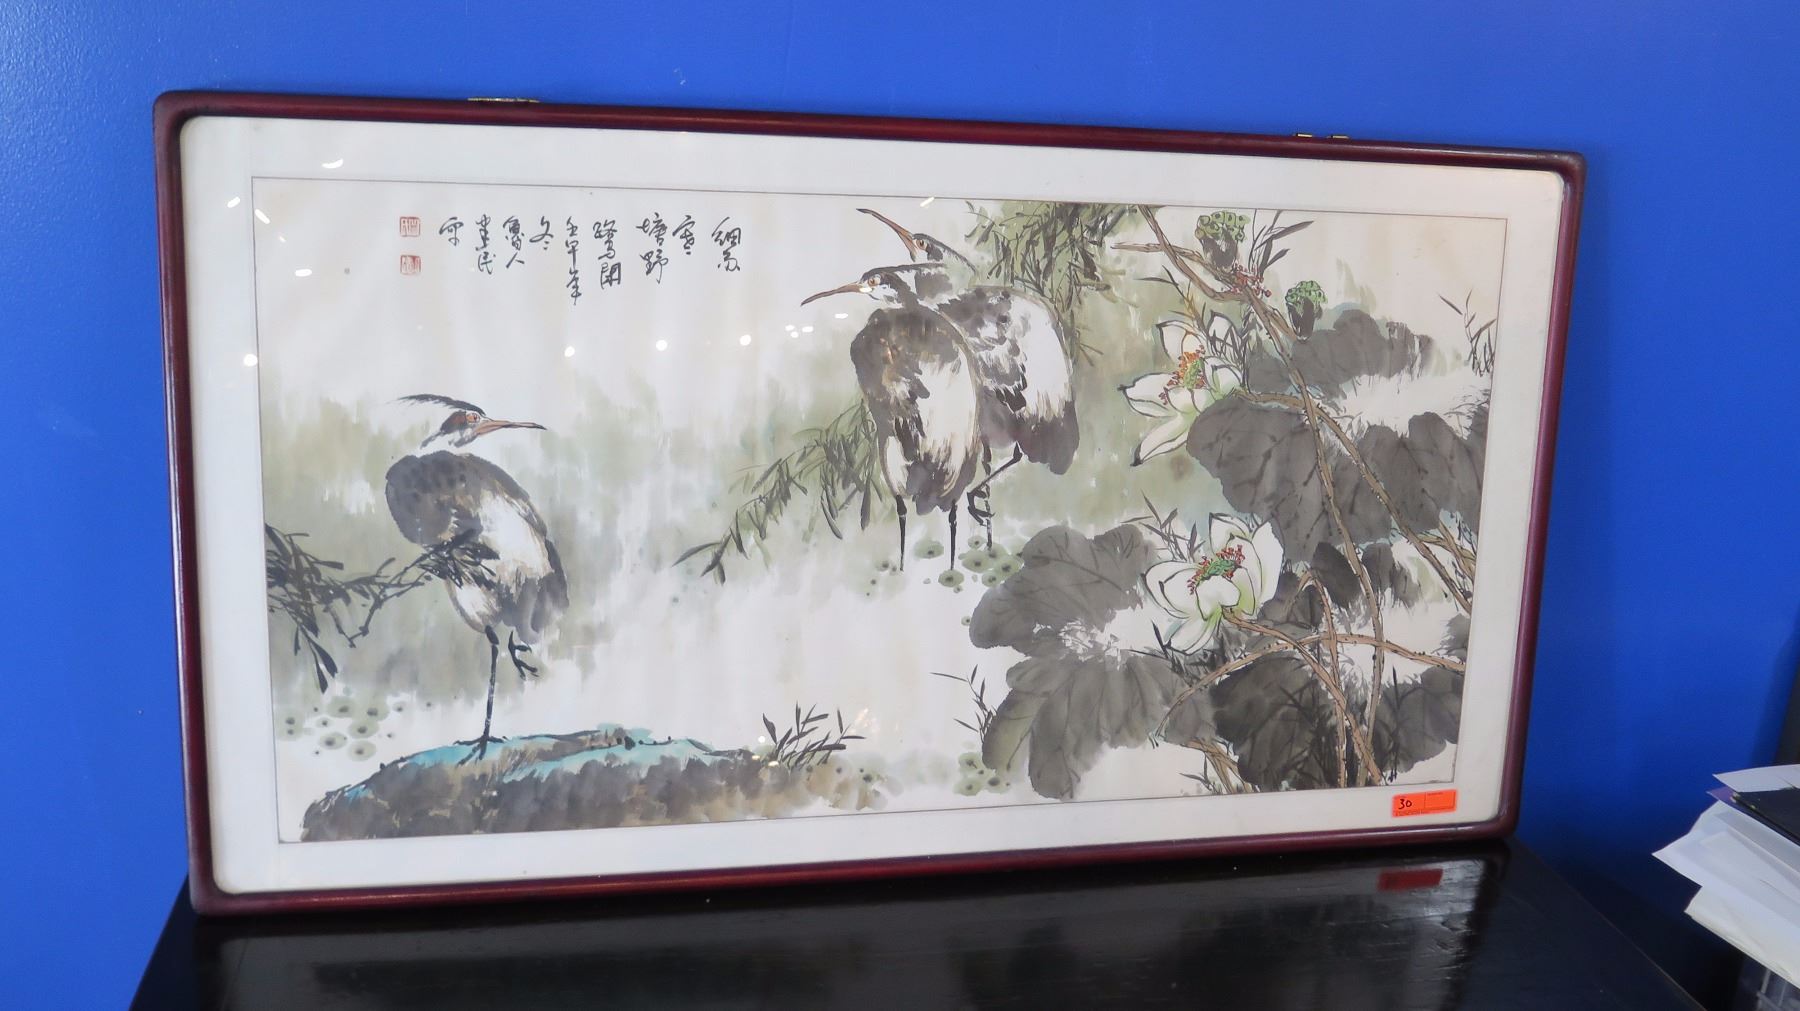 細雨
寒
塘野
鷺閑
壬午年
冬
魯人
建民
寫
30